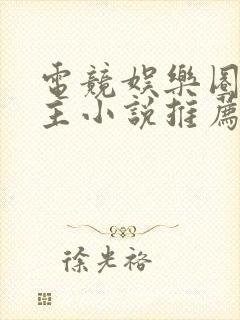 電競娛樂圈
主小說推薦
徐光裕